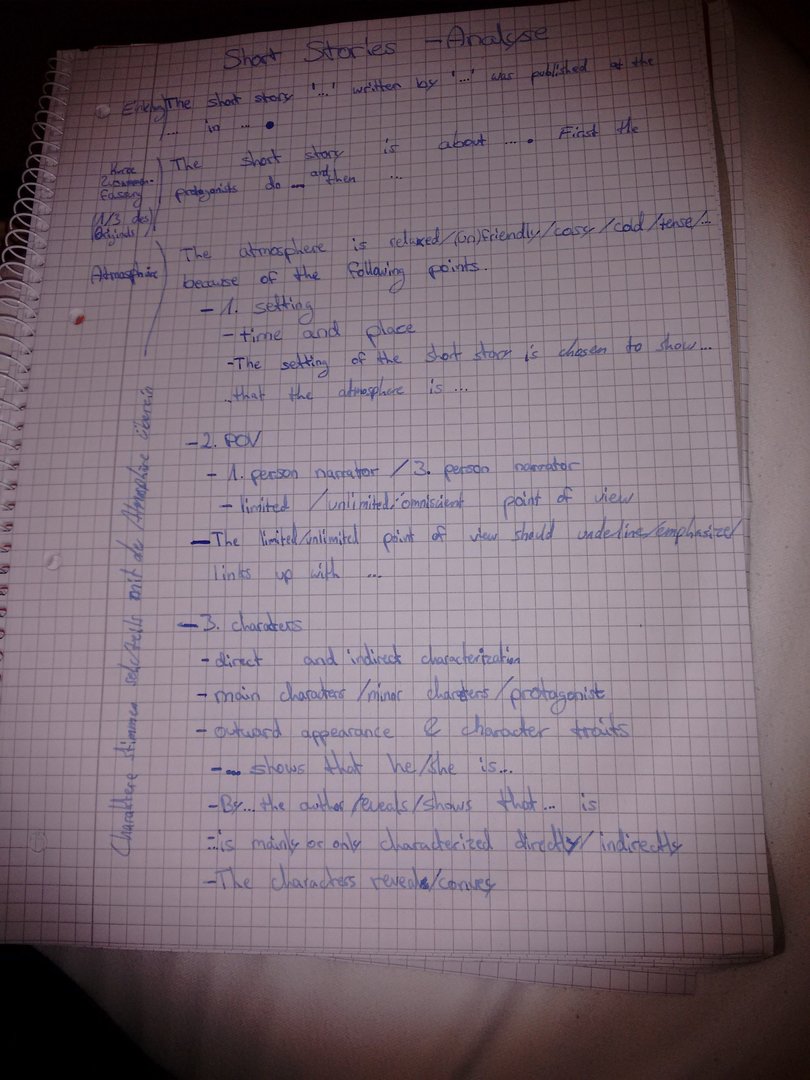 Short Stories - Analyse
The short story '...' written by '...' was published at the
... in ... .
Kurze
Zusammen-
fassung
(1/3 des
Originals)
The short story is about ... . First the
protagonists do ... and then ...
Atmosphäre
The atmosphere is relaxed/(un)friendly/cosy/cold/tense/...
because of the following points.
- 1. setting
- time and place
- The setting of the short story is chosen to show...
...that the atmosphere is ...
- 2. POV
- 1. person narrator / 3. person narrator
- limited / unlimited/omniscient point of view
- The limited/unlimited point of view should underline/emphasize/
links up with ...
- 3. charaters
- direct and indirect characterization
- main characters/minor characters/protagonist
- outward appearance & character traits
- ... shows that he/she is...
- By... the author/reveals/shows that... is
- is mainly or only characterized directly/indirectly
- The characters reveal/convey
Charaktere stimmen mit der Atmosphäre überein